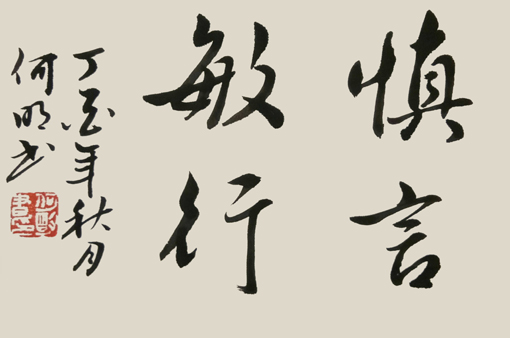 慎言
敏行
丁酉年秋月
何明书